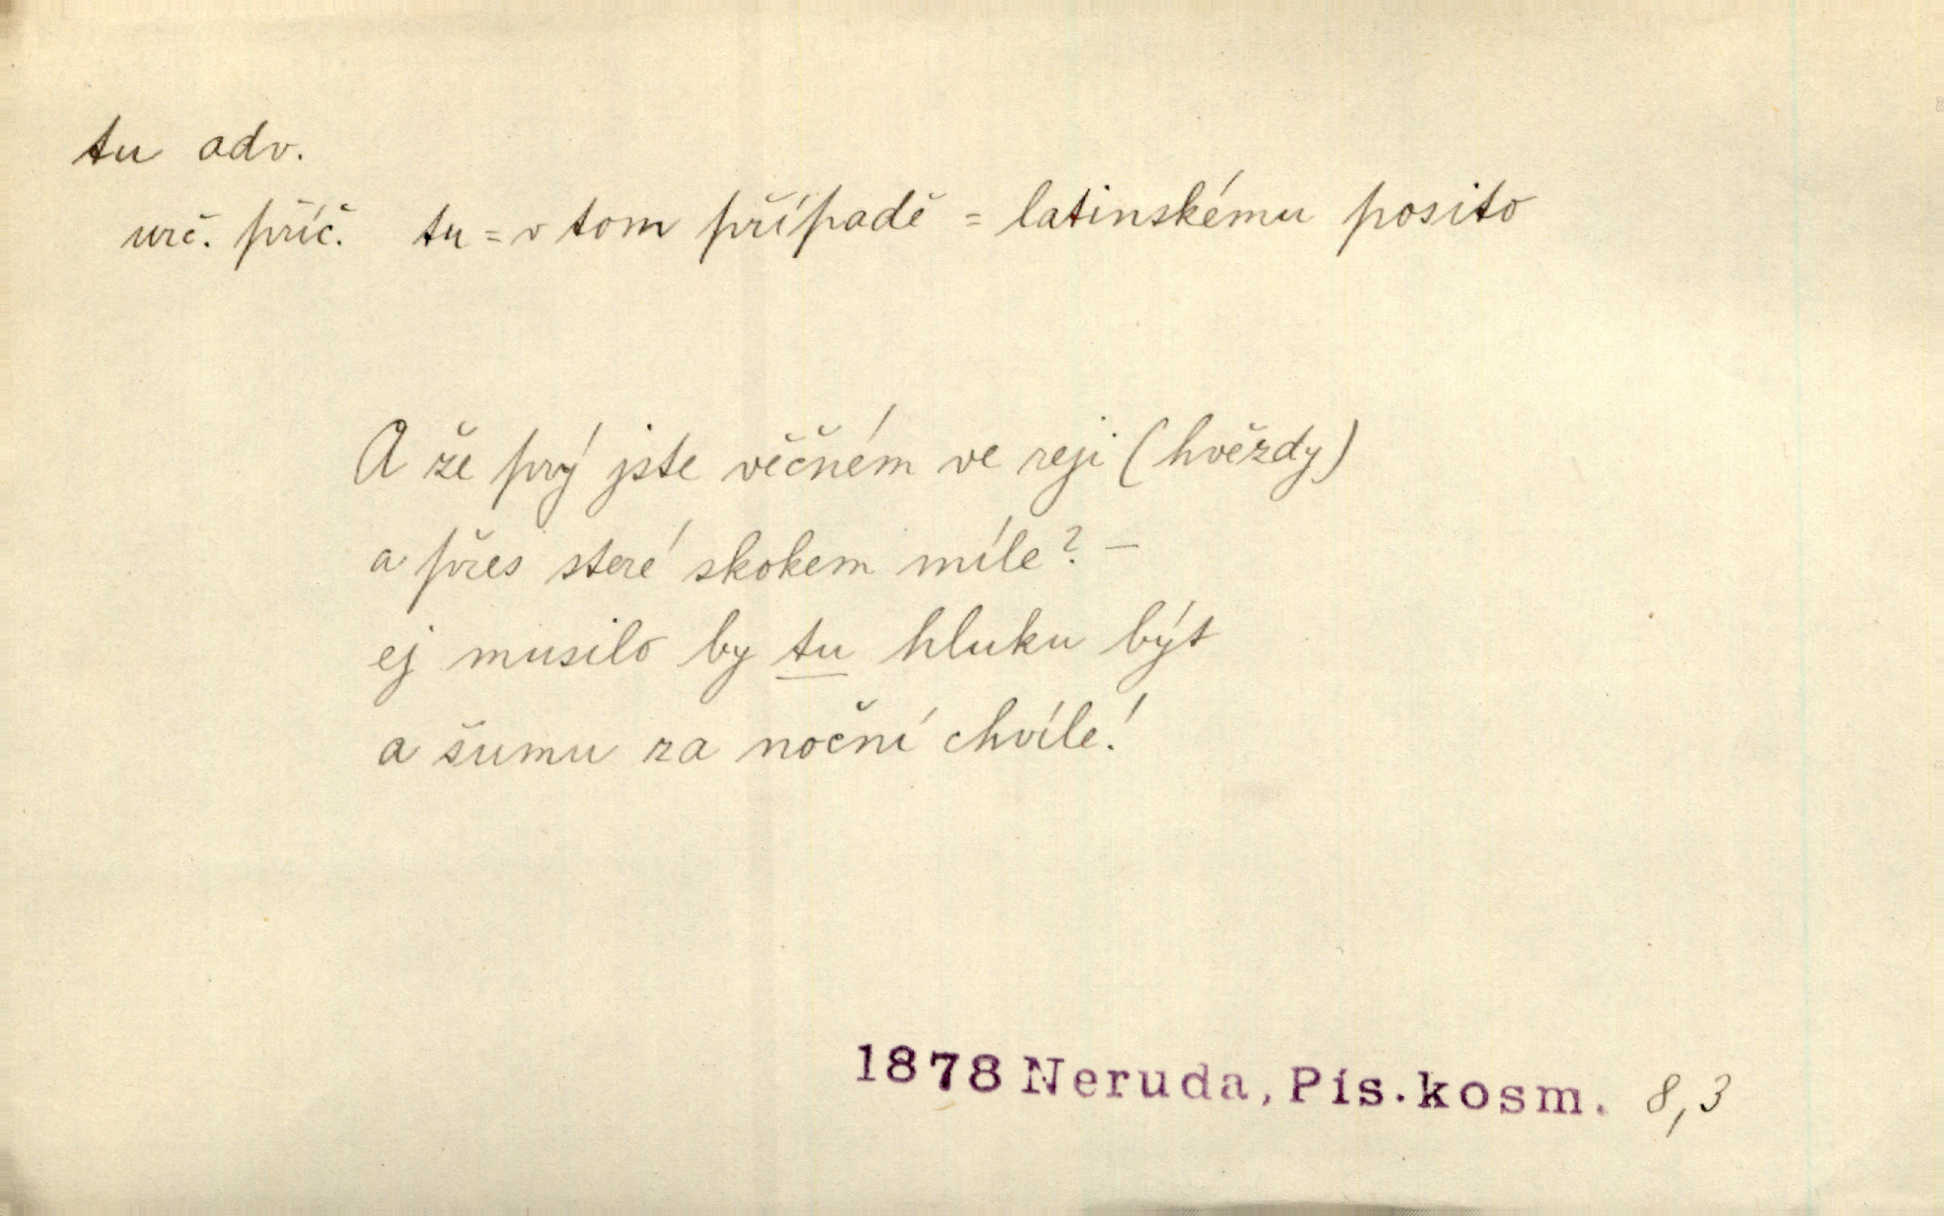 tu adv.
urč. příč. tu = v tom případě = latinskému posito
A že prý jste věčném ve reji (hvězdy)
a přes steré skokem míle? —
ej musilo by tu hluku být
a šumu za noční chvíle!
1878 Neruda, Pís. kosm. 8,3